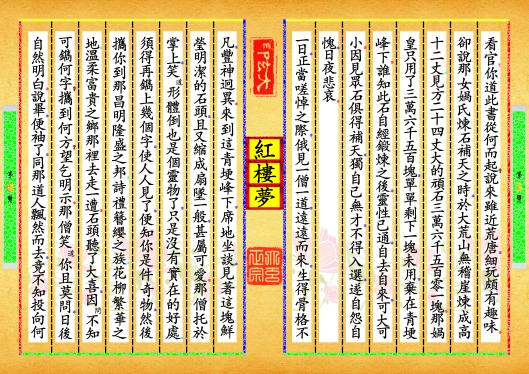 看官你道此書從何而起說來雖近荒唐細玩頗有趣味
卻說那女媧氏煉石補天之時於大荒山無稽崖煉成高
十二丈見方二十四丈大的頑石三萬六千五百零一塊那媧
皇只用了三萬六千五百塊單單剩下一塊未用棄在青埂
峰下誰知此石自經鍛煉之後靈性已通自去自來可大可
小因見眾石俱得補天獨自己無才不得入選遂自怨自
愧日夜悲哀
一日正當嗟悼之際俄見一僧一道遠遠而來生得骨格不
紅樓夢
凡豐神迥異來到這青埂峰下席地坐談見著這塊鮮
瑩明潔的石頭且又縮成扇墜一般甚屬可愛那僧托於
掌上笑道形體倒也是個靈物了只是沒有實在的好處
須得再鐫上幾個字使人人見了便知你是件奇物然後
攜你到那昌明隆盛之邦詩禮簪纓之族花柳繁華之
地溫柔富貴之鄉那裡去走一遭石頭聽了大喜因問不知
可鐫何字攜到何方望乞明示那僧笑道你且莫問日後
自然明白說畢便袖了同那道人飄然而去竟不知投向何